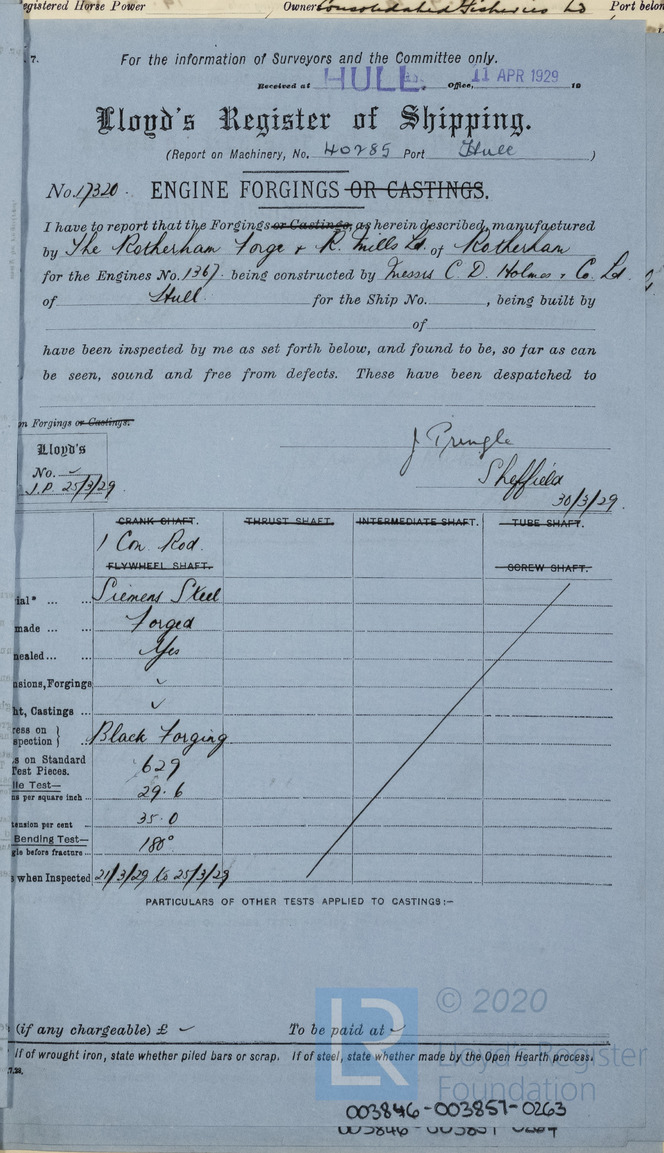 egistered Horse Power Owner Consolidated Fisheries Ld Port belon
7. For the information of Surveyors and the Committee only.
Received at HULL. Office, 11 APR 1929 19
Lloyd's Register of Shipping.
(Report on Machinery, No. 40285 Port Hull )
No. 17320. ENGINE FORGINGS OR CASTINGS.
I have to report that the Forgings or Castings, as herein described, manufactured
by The Rotherham Forge & R. Mills Ld. of Rotherham
for the Engines No. 1367. being constructed by Messrs C. D. Holmes & Co. Ld.
of Hull for the Ship No. , being built by
of
have been inspected by me as set forth below, and found to be, so far as can
be seen, sound and free from defects. These have been despatched to
n Forgings or Castings.
Lloyd's
No. ✓
J.P. 25/3/29
J. Pringle
Sheffield
30/3/29.
CRANK SHAFT. THRUST SHAFT. INTERMEDIATE SHAFT. TUBE SHAFT.
1 Con. Rod.
FLYWHEEL SHAFT. SCREW SHAFT.
ial* ... ... Siemens Steel
made ... ... Forged
nealed... ... Yes
nsions, Forgings ✓
ht, Castings ... ✓
ress on
spection } ... Black Forging
s on Standard
Test Pieces. 629
ile Test—
ns per square inch ... 29.6
tension per cent 35.0
Bending Test—
gle before fracture ... 180°
s when Inspected 21/3/29 to 25/3/29
PARTICULARS OF OTHER TESTS APPLIED TO CASTINGS:—
(if any chargeable) £ ✓ To be paid at ✓
If of wrought iron, state whether piled bars or scrap. If of steel, state whether made by the Open Hearth process.
7.28.
LR
© 2020
Lloyd's Register
Foundation
003846-003851-0263
003846-003851-0264